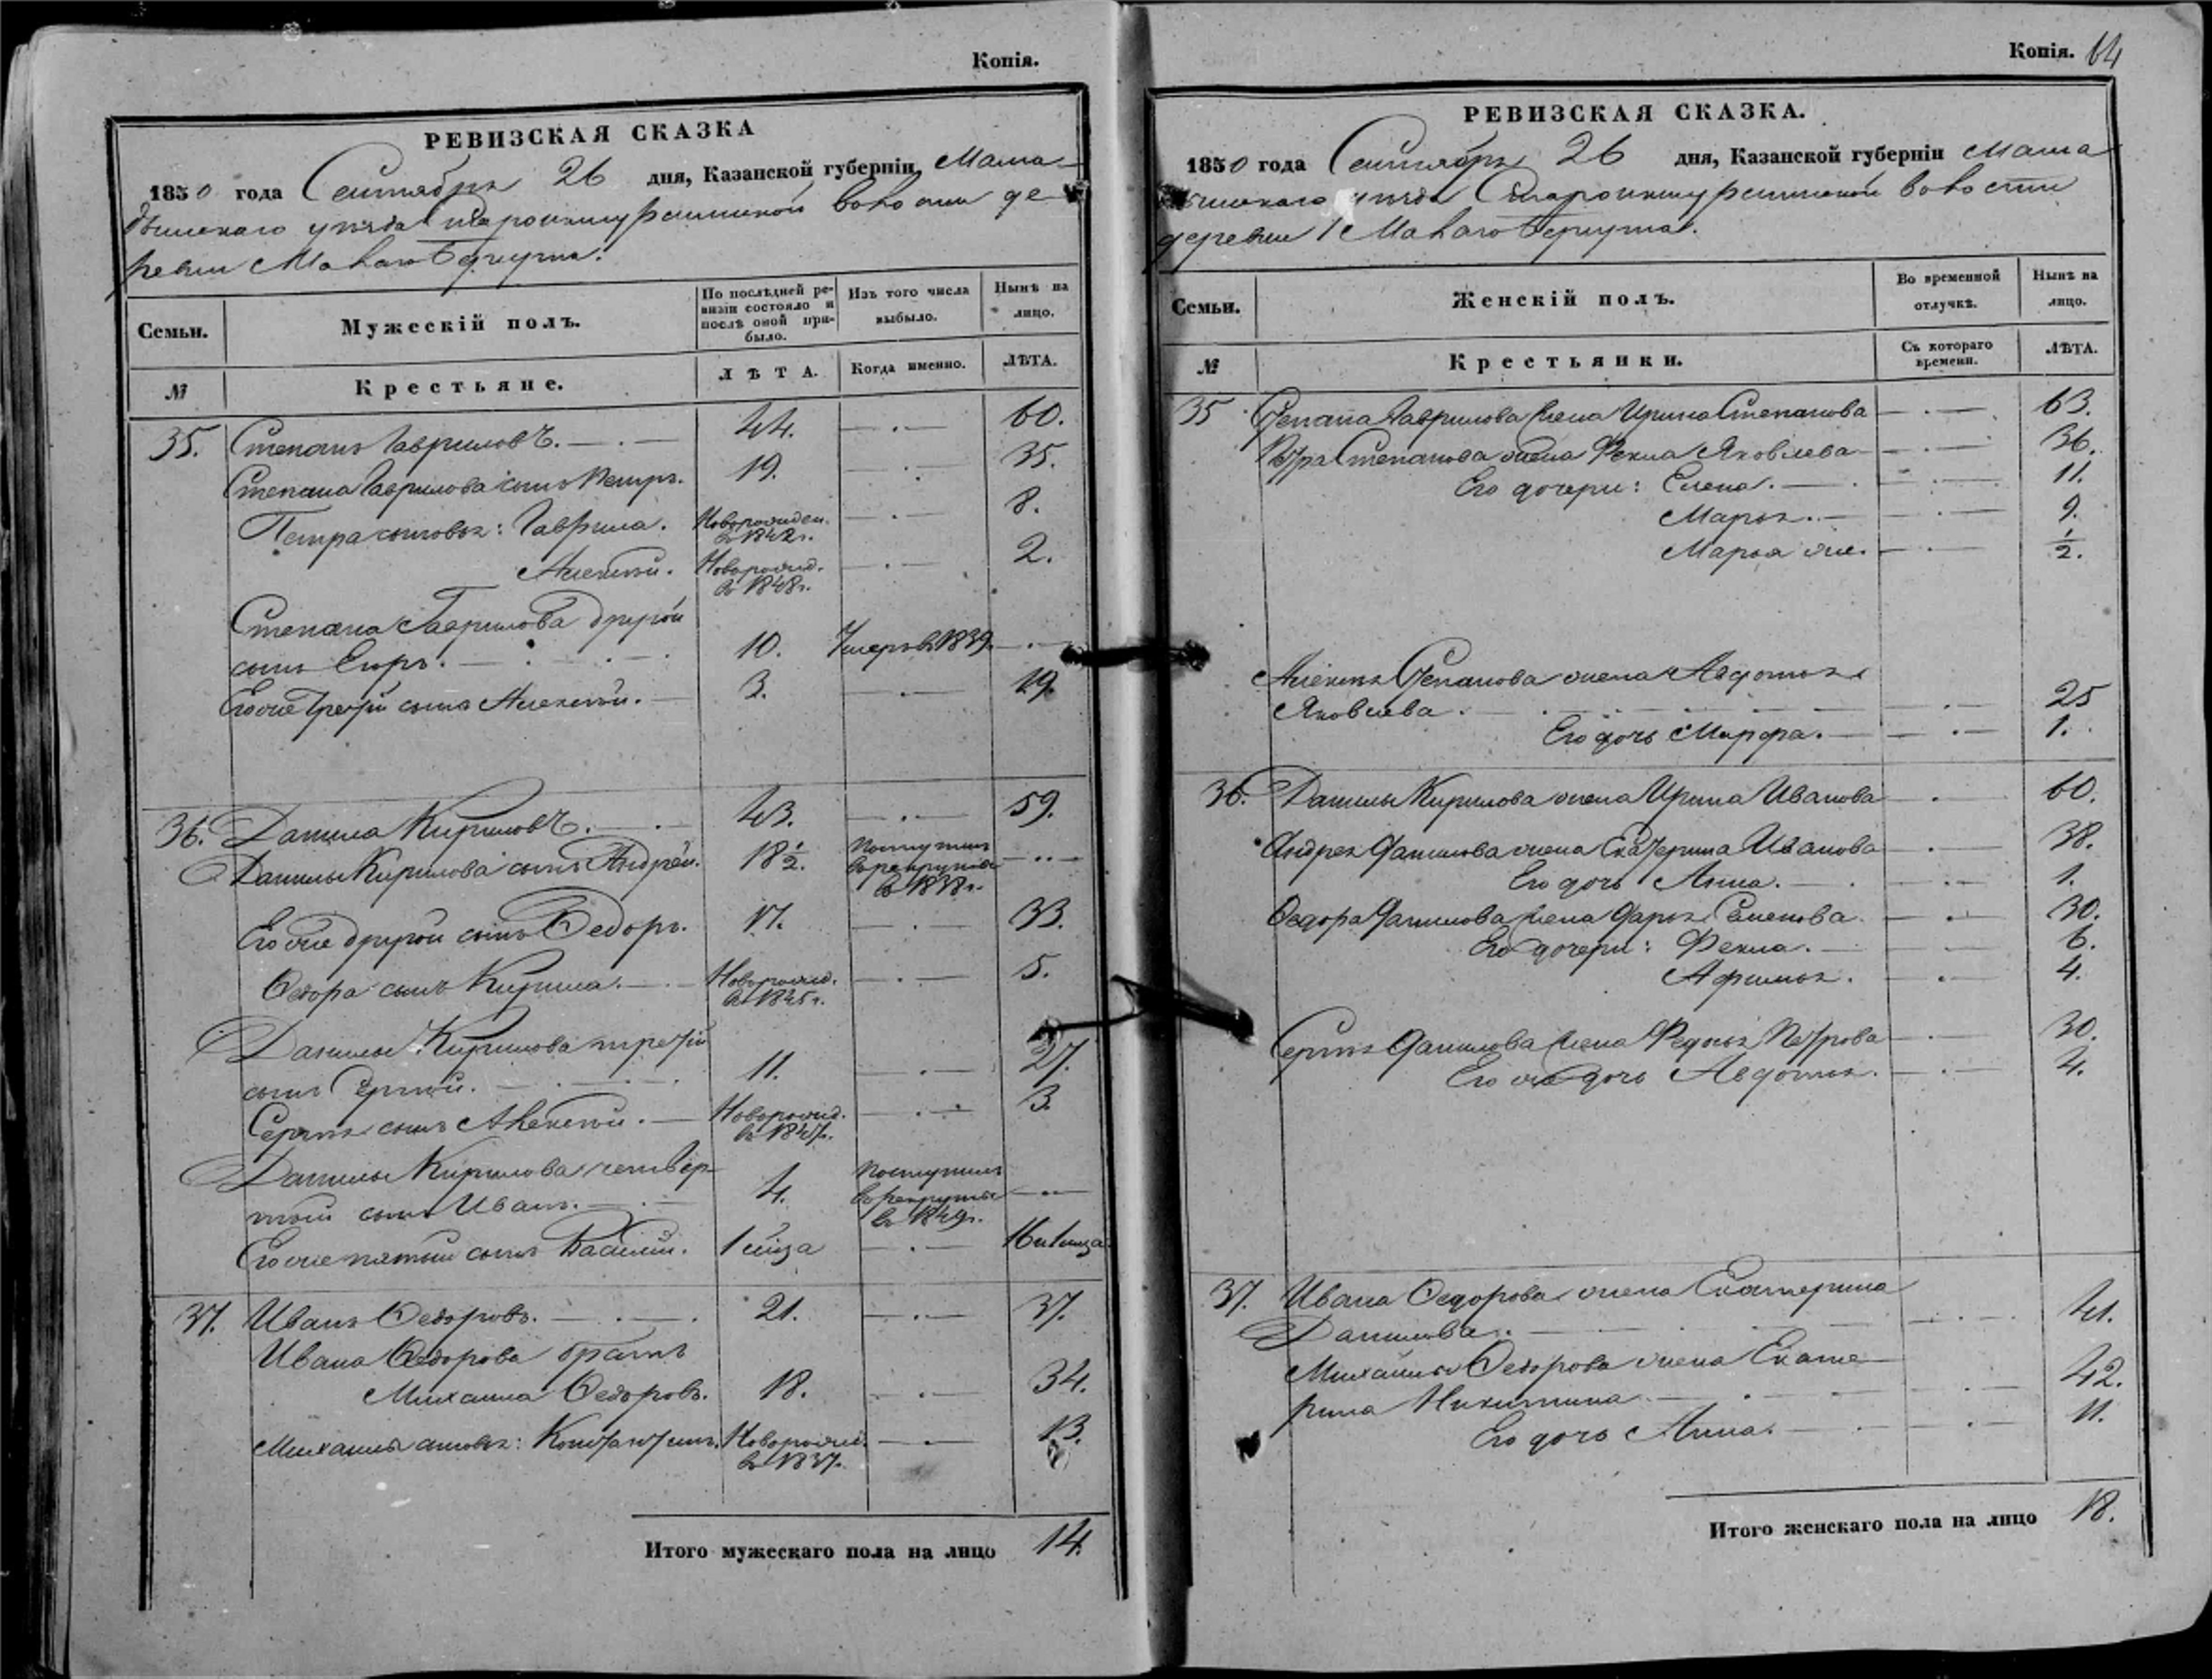 Копія.
РЕВИЗСКАЯ СКАЗКА
1850 года Сентября 26 дня, Казанской губерніи, Мама-
дышскаго уѣзда волости де-
ревни Малаго
Семьи.
Мужескій полъ.
По послѣдней ре-
визіи состояло и
послѣ оной при-
было.
Изъ того числа
выбыло.
Нынѣ на
лицо.
№
Крестьяне.
ЛѢТА.
Когда именно.
ЛѢТА.
35. Степанъ Гавриловъ. 44. 60.
Степана Гаврилова сынъ Петръ. 19. 35.
Петра сыновья: Гаврила. Новорожден. 8.
въ 1842 г.
Алексѣй. Новорожд. 2.
въ 1848 г.
Степана Гаврилова другой
сынъ Егоръ. 10. Умеръ въ 1839.
Его же третій сынъ Алексѣй. 3. 19.
36. Данила Кириловъ. 43. 59.
Данилы Кирилова сынъ Андрей. 18 1/2. поступилъ
въ рекруты
въ 1838 г.
Его же другой сынъ Ѳедоръ. 17. 33.
Ѳедора сынъ Кирила. Новорожд. 5.
въ 1845 г.
Данилы Кирилова третій
сынъ Сергѣй. 11. 27.
Сергѣя сынъ Алексѣй. Новорожд. 3.
въ 1847 г.
Данилы Кирилова четвер-
тый сынъ Иванъ. 4. поступилъ
въ рекруты
въ 1849 г.
Его же пятый сынъ Василій. 1 мѣсяца 16 и 1 мѣсяца
37. Иванъ Ѳедоровъ. 21. 37.
Ивана Ѳедорова братъ
Михаила Ѳедоровъ. 18. 34.
Михаилы сыновья: Константинъ. Новорожд. 13.
въ 1837.
Итого мужескаго пола на лицо 14.
Копія. 64
РЕВИЗСКАЯ СКАЗКА.
1850 года Сентября 26 дня, Казанской губерніи Мама
дышскаго уѣзда волости
деревни Малаго
Семьи.
Женскій полъ.
Во временной
отлучкѣ.
Нынѣ на
лицо.
№
Крестьянки.
Съ котораго
времени.
ЛѢТА.
35 Степана Гаврилова жена Ирина Степанова 63.
Петра Степанова жена Фекла Яковлева 36.
Его дочери: Елена. 11.
Марья. 9.
Марья же. 1/2.
Алексѣя Степанова жена Авдотья
Яковлева. 25
Его дочь Марфа. 1.
36. Данилы Кирилова жена Ирина Иванова 60.
Андрея Данилова жена Екатерина Иванова 38.
Его дочь Анна. 1.
Ѳедора Данилова жена Дарья Семенова. 30.
Его дочери: Фекла. 6.
Афимья. 4.
Сергѣя Данилова жена Федосья Петрова 30.
Его же дочь Авдотья. 4.
37. Ивана Ѳедорова жена Екатерина
Данилова. 41.
Михайлы Ѳедорова жена Екате-
рина Никитина 42.
Его дочь Анна. 11.
Итого женскаго пола на лицо 18.